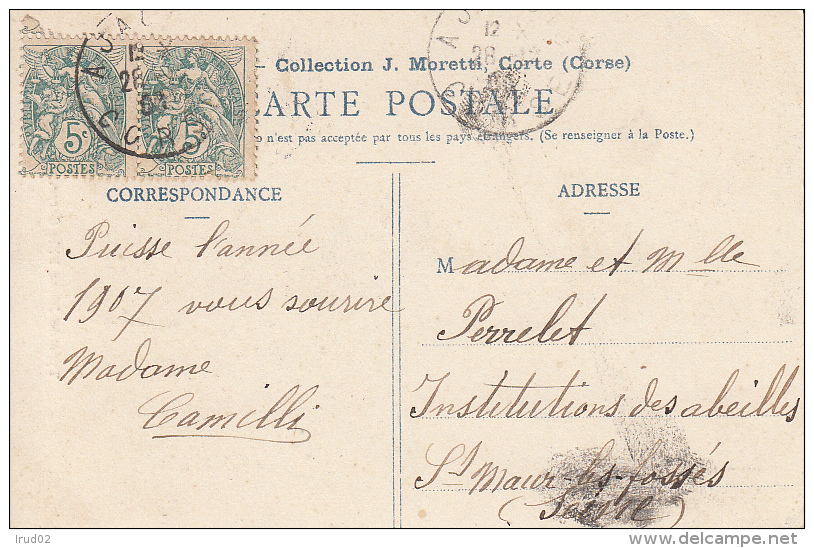 Collection J. Moretti, Corte (Corse)
CARTE POSTALE
n'est pas acceptée par tous les pays étrangers. (Se renseigner à la Poste.)
5c
POSTES
5
POSTES
12
26
12
26
CORRESPONDANCE
ADRESSE
Puisse l'année
1907 vous sourire
Madame
Camilli
Madame et Mlle
Perrelet
Institutions des abeilles
St Maur-les-fossés
(Seine)
Irud02
delcampe.net